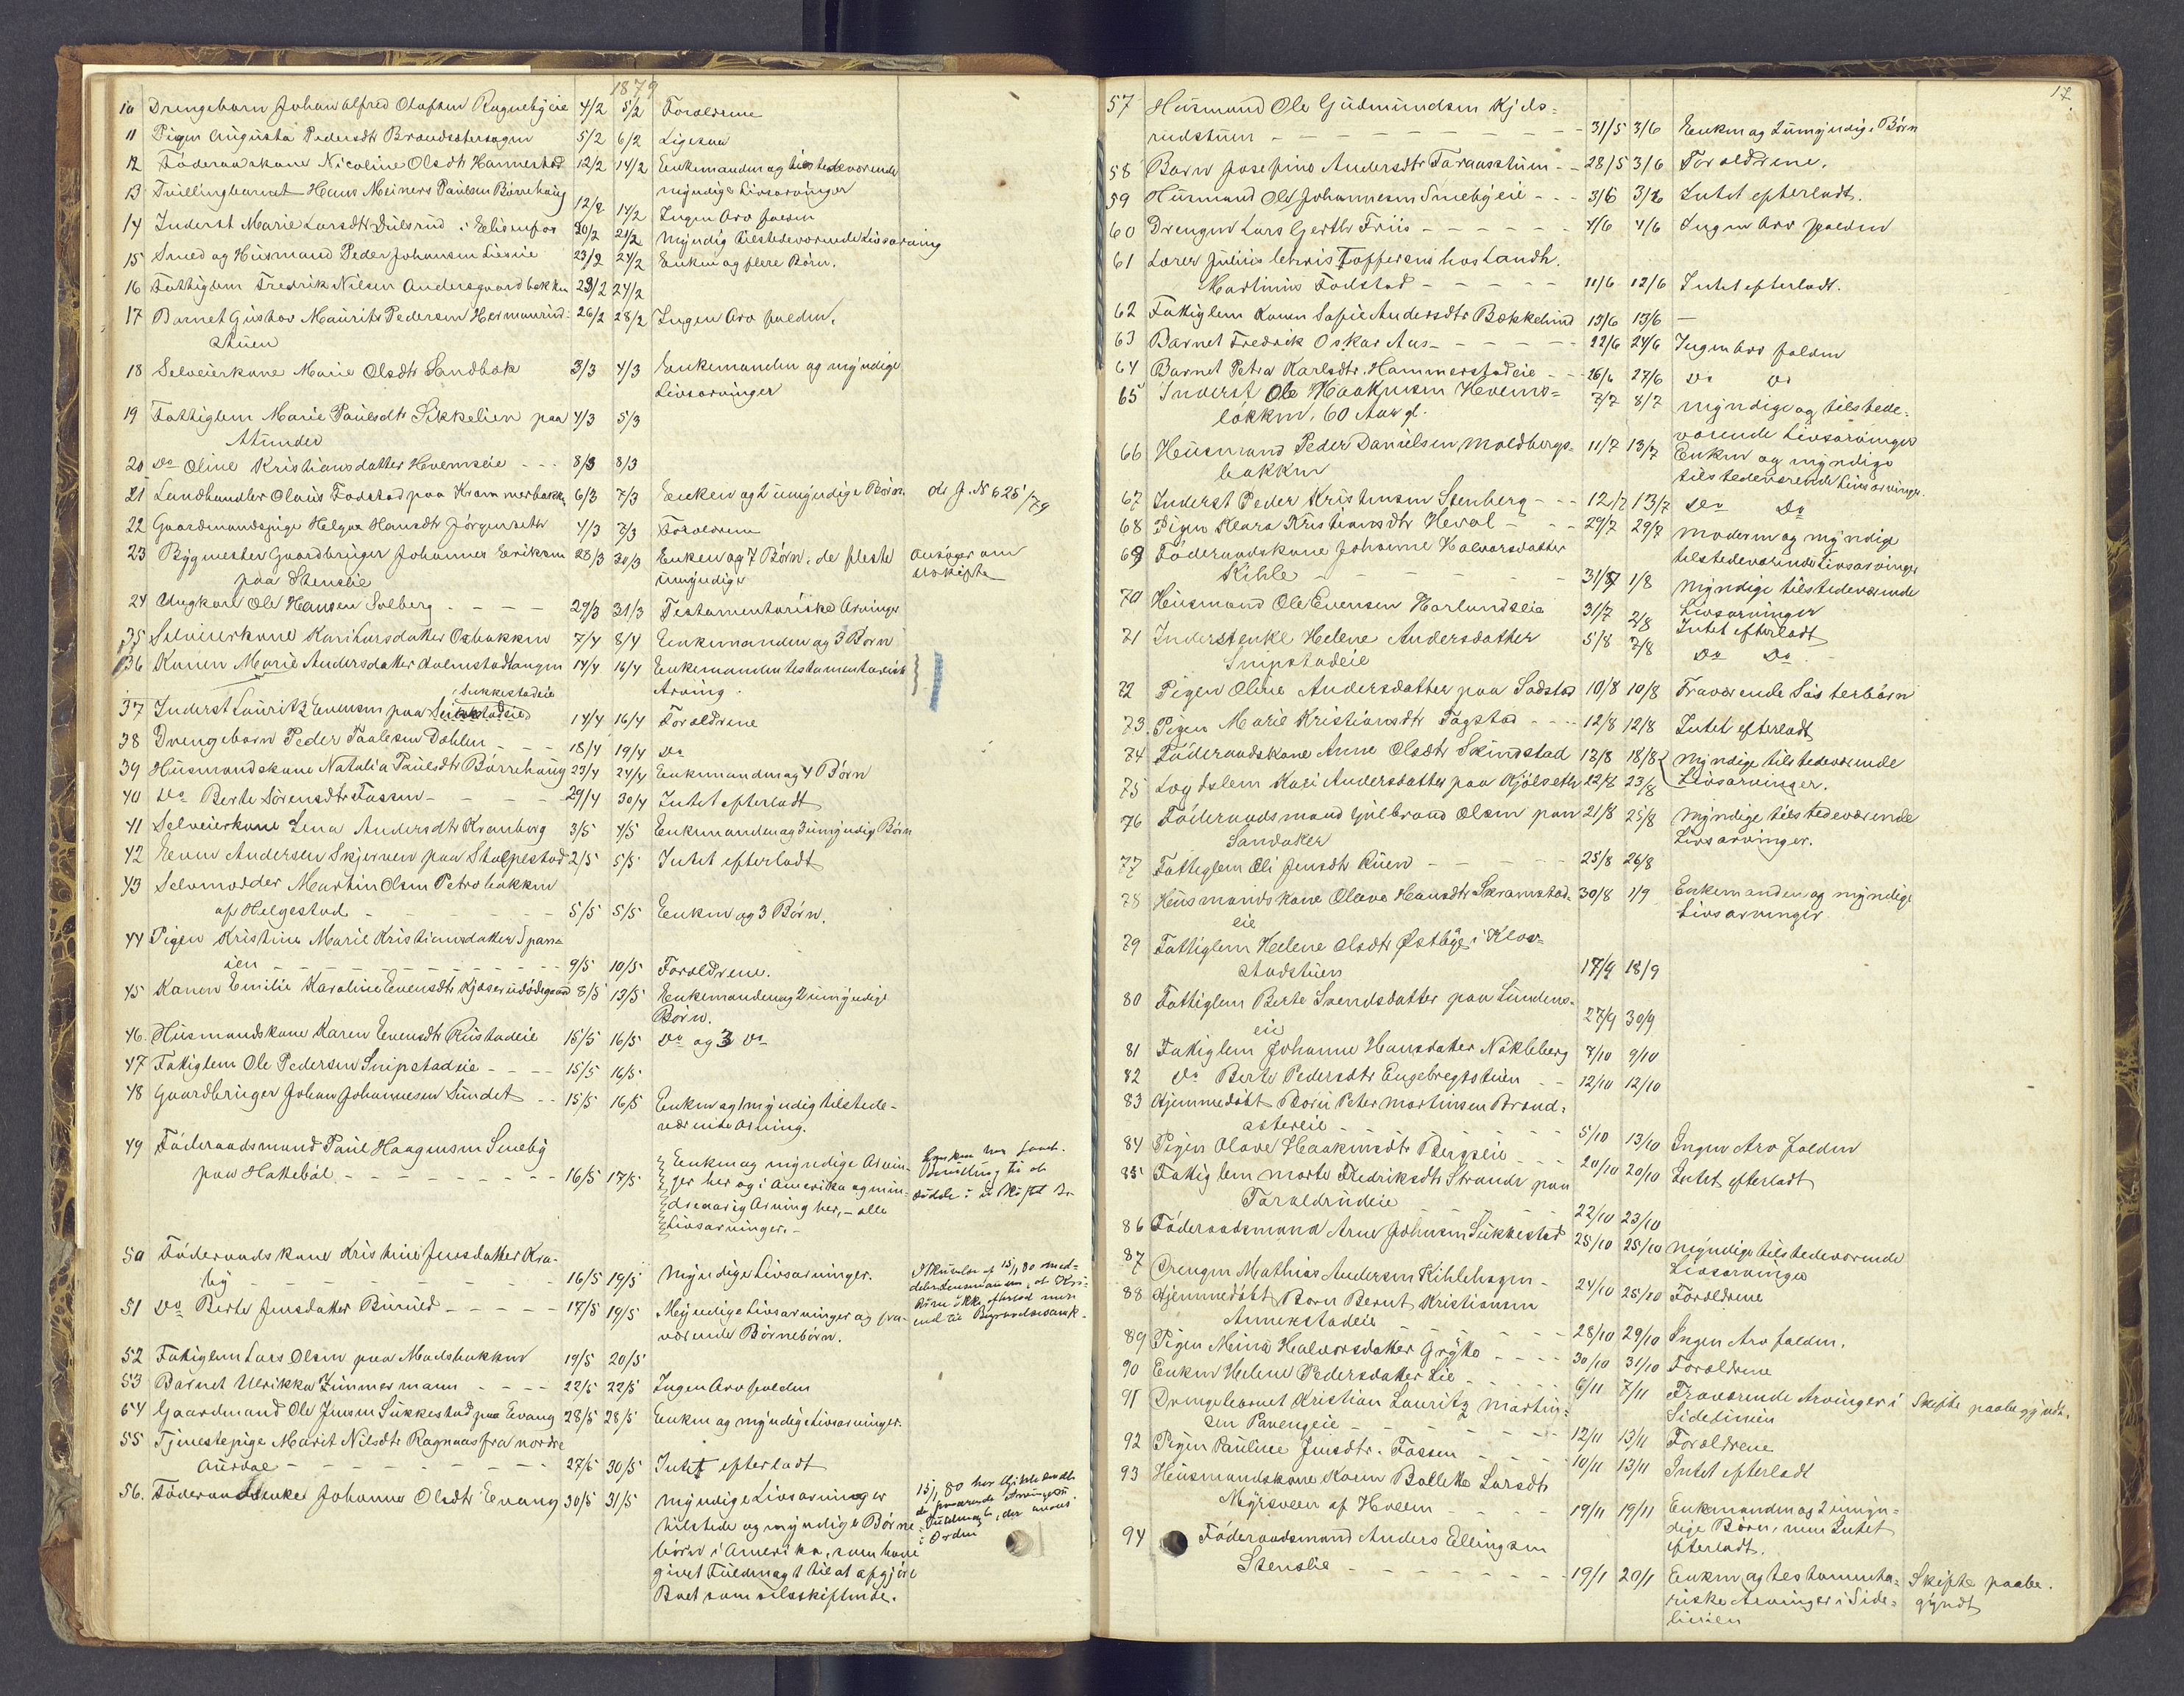 1879
10 Drengebarn Johan Alfred Olafsen Ragnebyeie 4/2 5/2 Forældrene
11 Pigen Augusta Pedersdtr Brandsætersagen 5/2 6/2 Ligesaa
12 Föderaadskone Nicoline Olsdtr Hammerstad 12/2 14/2 Enkemanden og tilstedeværende
13 Tvillingbarnet Hans Meiners Paulsen Börrehaug 12/2 14/2 myndige Livsarvinger
Ingen Arv falden
14 Inderst Marie Larsdtr Dulsrud i Eliesenfos 20/2 21/2 Myndig tilstedeværende Livsarving
15 Smed og Husmand Peder Johansen Lieeie 23/2 24/2 Enken og flere Börn.
16 Fattiglem Fredrik Nilsen Andersgaardbakken 23/2 24/2
17 Barnet Gustav Mauritz Pedersen Hermanrud- 26/2 28/2 Ingen Arv falden.
stuen
18 Selveierkone Marie Olsdtr Sandbæk 3/3 4/3 Enkemanden og myndige
Livsarvinger
19 Fattiglem Marie Paulsdtr Sikkelien paa 4/3 5/3
Stunder
20 Do Oline Kristiansdatter Hvemseie - - - 8/3 8/3
21 Landhandler Olaus Fodstad paa Krammerbakk. 6/3 7/3 Enken og 2 umyndige Börn. do J. N 625/79
22 Gaardmandspige Helga Hansdtr Jörgenseth 4/3 7/3 Forældrene
23 Bygmester Gaardbruger Johannes Eriksen 28/3 30/3 Enken og 7 Börn, de fleste ansöger om
paa Stenslie umyndige uskiftet
24 Ungkarl Ole Hansen Solberg - - - - 29/3 31/3 Testamentariske Arvinger
35 Selveierkone Kari Larsdatter Osbakken 7/4 8/4 Enkemanden og 3 Börn
36 Konen Marie Andersdatter Holmstadtangen 14/4 16/4 Enkemanden testamentarisk
Arving.
Sukkestadeie
37 Inderst Lauritz Evensen paa 14/4 16/4 Forældrene
38 Drengebarn Peder Paalesen Dahlen - - - 18/4 19/4 Do
39 Husmandskone Natalia Paulsdtr Börrehaug 23/4 24/4 Enkemanden og 4 Börn
40 Do Berte Sörensdtr Fossen - - - - 29/4 30/4 Intet efterladt
41 Selveierkone Lena Andersdtr Kranborg 3/5 4/5 Enkemanden og 3 umyndige Börn
42 Even Andersen Skjerven paa Stolpestad 2/5 5/5 Intet efterladt
43 Selvmorder Martin Olsen Petrobakken
af Helgestad - - - - - 5/5 5/5 Enken og 3 Börn.
44 Pigen Kristine Marie Kristiansdatter Span-
ien - - - - - - 9/5 10/5 Forældrene.
45 Konen Emilie Karoline Evensdtr Kjöserudödegaard 8/5 13/5 Enkemanden og 2 umyndige
Börn.
46. Husmandskone Karen Evensdtr Rustadeie 15/5 16/5 Do og 3 Do
47 Fattiglem Ole Pedersen Snipstadeie - - - 15/5 16/5
48 Gaardbruger Johan Johannesen Sundet - - 15/5 16/5 Enken og 1 myndig tilstede-
værende Arving.
49 Föderaadsmand Paul Haagensen Smeby
paa Hatteböl - - - - - - 16/5 17/5 Enken og myndige Arvin-
ger her og i Amerika og min-
dreaarig Arving her, - alle
Livsarvinger. -
50 Föderaadskone Kristine Jensdatter Kra-
by - - - - - - 16/5 19/5 Myndige Livsarvinger.
51 Do Berte Jensdatter Burud - - - - 17/5 19/5 Myndige Livsarvinger og fra-
værende Börnebörn.
52 Fattiglem Lars Olsen paa Madsbakken 19/5 20/5
53 Barnet Ulrikka Zimmermann - - - - 22/5 22/5 Ingen Arv falden
54 Gaardmand Ole Jensen Sukkestad paa Evang 28/5 28/5 Enken og myndige Livsarvinger.
55 Tjenestepige Marit Nilsdtr Ragnaas fra nordre
Aurdal - - - - - - 27/5 30/5 Intet efterladt
56. Föderaadsenke Johanne Olsdtr Evang 30/5 31/5 Myndige Livsarvinger
tilstede og myndige Börne-
börn i Amerika, som have
givet Fuldmagt til at afgjöre
Boet som selvskiftende.
17.
57 Husmand Ole Gudmundsen Kjels-
rudstuen - - - - - - - 31/5 3/6 Enken og 2 umyndige Börn
58 Barn Josefine Andersdtr Faraasstuen - - 28/5 3/6 Forældrene.
59 Husmand Ole Johannesen Smebyeie - - - 3/6 3/6 Intet efterladt.
60 Drengen Lars Gerth Friis - - - - - - 4/6 4/6 Ingen Arv falden
61 Lærer Julius Christoffersens hos Landh.
Martinus Fodstad - - - - - 11/6 12/6 Intet efterladt.
62 Fattiglem Karen Sofie Andersdtr Bækkelund 13/6 13/6 -
63 Barnet Fredrik Oskar Aas - - - - - 22/6 24/6 Ingen Arv falden
64 Barnet Petra Karlsdtr. Hammerstadeie - - 26/6 27/6 Do Do
65 Inderst Ole Haakensen Hvems-
lökken, 60 Aar gl. 7/7 8/7 Myndige og tilstede-
værende Livsarvinger
66 Husmand Peder Danielsen Moldbergs- 11/7 13/7 Enken og myndige
bakken tilstedeværende Livsarvinger.
67 Inderst Peder Kristensen Stenberg - - - 12/7 13/7 Do Do
68 Pigen Klara Kristiansdtr Heval - - - 29/7 29/7 Moderen og myndige
tilstedeværende Livsarvinger
69 Föderaadskone Johanne Halvorsdatter
Kihle - - - - - - - 31/7 1/8 Myndige tilstedeværende
Livsarvinger
70 Husmand Ole Evensen Horlundseie 31/7 2/8 Intet efterladt
71 Inderstenke Helene Andersdatter 5/8 7/8 Do Do
Snipstadeie
72 Pigen Oline Andersdatter paa Sodstad 10/8 10/8 Fraværende Sösterbörn
73. Pigen Marie Kristiansdtr Fagstad - - - - 12/8 12/8 Intet efterladt
74 Föderaadskone Anne Olsdtr Skindstad 13/8 18/8 Myndige tilstedeværende
75 Lægdslem Kari Andersdatter paa Kjölseth 22/8 23/8 Livsarvinger.
76 Föderaadsmand Gulbrand Olsen paa 21/8 25/8 Myndige tilstedeværende
Sandaker Livsarvinger.
77 Fattiglem Eli Jensdtr Ruen - - - - - 25/8 26/8
78 Husmandskone Olava Hansdtr Skramstad- 30/8 1/9 Enkemanden og myndige
eie Livsarvinger
79 Fattiglem Helene Olsdtr Østby i Klov-
stadstuen 17/9 18/9
80 Fattiglem Berte Svendsdatter paa Lundens-
eie 27/9 30/9
81 Fattiglem Johanne Hansdatter Nökleberg 7/10 9/10
82 Do Berte Pedersdtr Engebregtstuen - - 12/10 12/10
83 Hjemmedöbt Barn Peter Martinsen Brand-
sætereie - - - - - - 5/10 13/10 Ingen Arv falden
84 Pigen Olave Haakensdtr Bergseie - - - 20/10 20/10 Intet efterladt
85 Fattiglem Marte Fredriksdtr Strande paa
Taraldrudeie - - - 22/10 23/10
86 Föderaadsmand Arne Johnsen Sukkestad 25/10 25/10 Myndige tilstedeværende
Livsarvinger
87 Drengen Mathias Andersen Kihlehagen - 24/10 25/10 Forældrene
88 Hjemmedöbt Barn Bernt Kristiansen
Annekstadeie - - - - - 28/10 29/10 Ingen Arv falden.
89 Pigen Mina Halvorsdatter Gryte - - - - 30/10 31/10 Forældrene
90 Enken Helene Pedersdatter Lie - - - - - 6/11 7/11 Fraværende Arvinger i Skifte paabegyndt.
Sidelinien
91 Drengebarnet Kristian Lauritz Martin-
sen Prvengeie - - - - - - 12/11 13/11 Forældrene
92 Pigen Pauline Jensdtr. Fossen - - - - 10/11 13/11 Intet efterladt
93 Husmandskone Karen Bolette Larsdtr
Myrsveen af Hveem - - - - 19/11 19/11 Enkemanden og 2 umyn-
dige Börn, men Intet
efterladt.
94 Föderaadsmand Anders Ellingsen
Stenslie - - - - - - - 19/11 20/11 Enken og testamenta- Skifte paabe-
riske Arvinger i Side- gyndt
linien